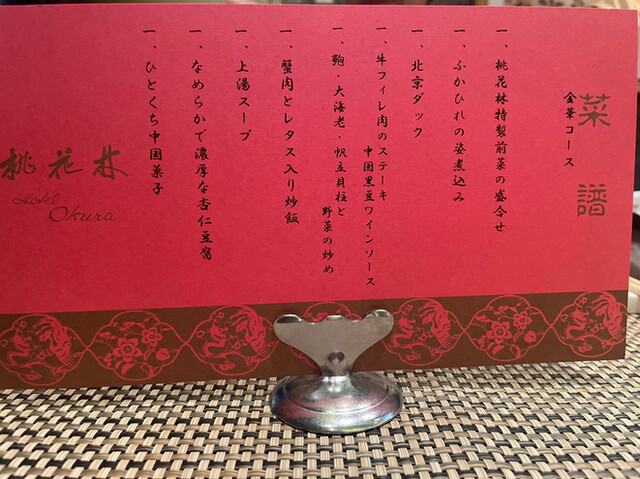 菜譜
金華コース
一、桃花林特製前菜の盛合せ
一、ふかひれの姿煮込み
一、北京ダック
一、牛フィレ肉のステーキ
中国黒豆ワインソース
一、鮑・大海老・帆立貝柱と
野菜の炒め
一、蟹肉とレタス入り炒飯
一、上湯スープ
一、なめらかで濃厚な杏仁豆腐
一、ひとくち中国菓子
桃花林
Hotel
Okura